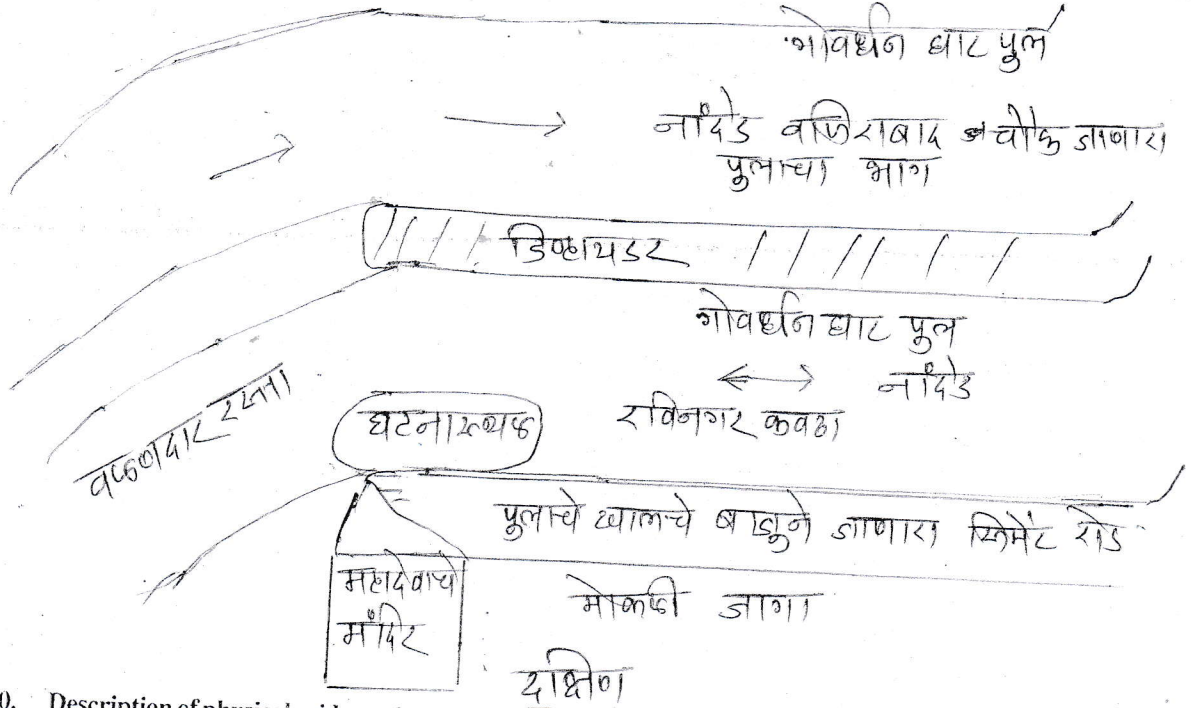 गोवर्धन घाट पुल
नांदेड वजिराबाद चौक जाणारा
पुलाचा भाग
डिव्हायडर
गोवर्धन घाट पुल
नांदेड
रविनगर कवठा
वळणदार रस्ता
घटनास्थळ
पुलाचे खालचे बाजुने जाणारा सिमेंट रोड
महादेवाचे
मंदिर
मोकळी जागा
दक्षिण
0. Description of physical